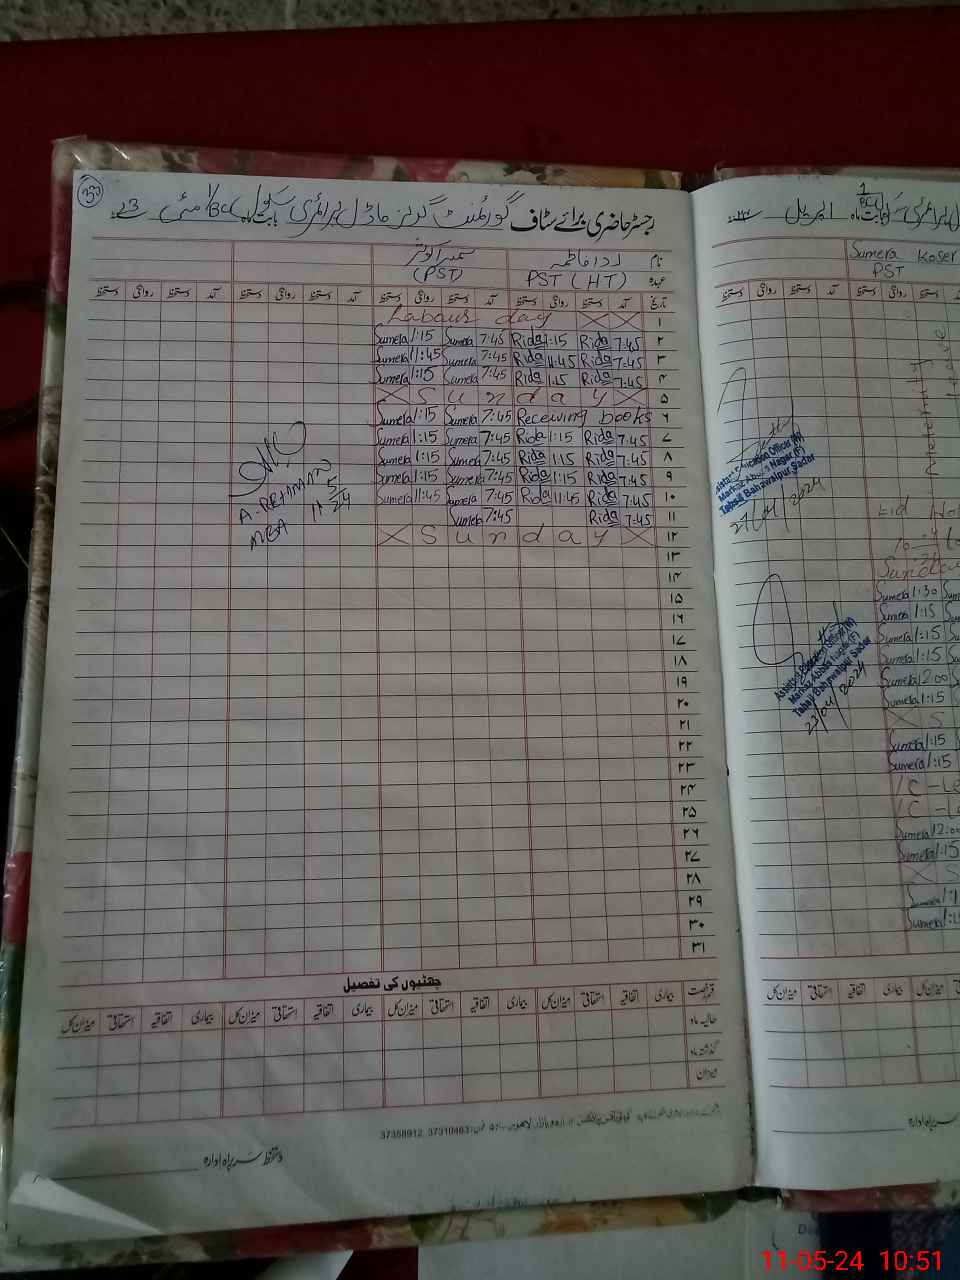 33
رجسٹر حاضری برائے سٹاف گورنمنٹ گرلز ماڈل پرائمری سکول 1/BC بابت ماہ مئی
نام ردا فاطمہ سمیرا کوثر
عہدہ PST (HT) (PST)
تاریخ آمد دستخط روانگی دستخط آمد دستخط روانگی دستخط آمد دستخط روانگی دستخط آمد دستخط روانگی دستخط
۱ Labour day
۲ Sumera 1:15 Sumera 7:45 Rida 1:15 Rida 7:45
۳ Sumera 11:45 Sumera 7:45 Rida 11:45 Rida 7:45
۴ Sumera 1:15 Sumera 7:45 Rida 1:15 Rida 7:45
۵ Sunday
۶ Sumera 1:15 Sumera 7:45 Receiving books
۷ Sumera 1:15 Sumera 7:45 Rida 1:15 Rida 7:45
۸ Sumera 1:15 Sumera 7:45 Rida 1:15 Rida 7:45
۹ Sumera 1:15 Sumera 7:45 Rida 1:15 Rida 7:45
۱۰ Sumera 11:45 Sumera 7:45 Rida 11:45 Rida 7:45
۱۱ Sumera 7:45 Rida 7:45
۱۲ Sunday
۱۳
۱۴
۱۵
۱۶
۱۷
۱۸
۱۹
۲۰
۲۱
۲۲
۲۳
۲۴
۲۵
۲۶
۲۷
۲۸
۲۹
۳۰
۳۱
A. REHMAN
MEA
11/5/24
چھٹیوں کی تفصیل
قسم رخصت بیماری اتفاقیہ استحقاقی میزان کل بیماری اتفاقیہ استحقاقی میزان کل بیماری اتفاقیہ استحقاقی میزان کل بیماری اتفاقیہ استحقاقی میزان کل
حالیہ ماہ
گذشتہ ماہ
میزان
37358912 37310463
دستخط سربراہ ادارہ
1/BC بابت ماہ اپریل
Sumera Koser
PST
دستخط روانگی دستخط آمد دستخط
Markaz Abbas Nagar (F)
Tehsil Bahawalpur Sadar
27/04/2024
Sumera 1:30
Sumera 1:15
Sumera 1:15
Sumera 1:15
Sumera 12:00
Sumera 1:15
Assistant Education Officer (W)
Markaz Abbas Nagar (F)
Tehsil Bahawalpur Sadar
23/04/2024
Sumera 1:15
Sumera 1:15
Sumera 12:00
Sumera 1:15
میزان کل استحقاقی اتفاقیہ بیماری میزان کل
سربراہ ادارہ
11-05-24 10:51